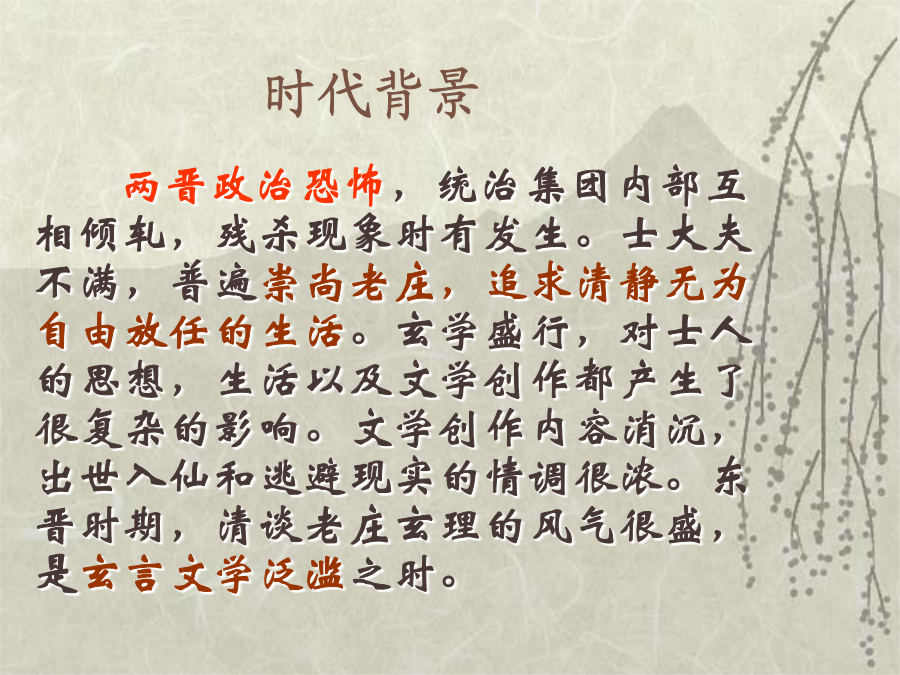 时代背景
两晋政治恐怖，统治集团内部互
相倾轧，残杀现象时有发生。士大夫
不满，普遍崇尚老庄，追求清静无为
自由放任的生活。玄学盛行，对士人
的思想，生活以及文学创作都产生了
很复杂的影响。文学创作内容消沉，
出世入仙和逃避现实的情调很浓。东
晋时期，清谈老庄玄理的风气很盛，
是玄言文学泛滥之时。